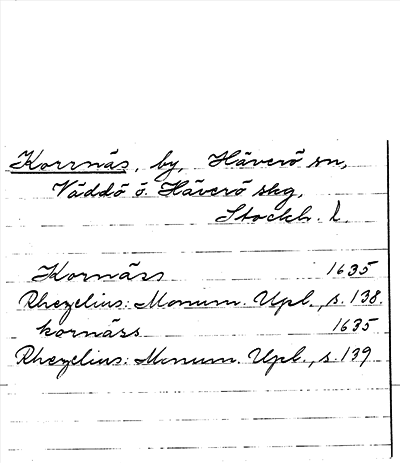 Korrnäs, by, Häverö sn,
Väddö o. Häverö skg,
Stockh. l.
Kornäss 1635
Rhezelius: Monum. Upl., s. 138.
kornäss 1635
Rhezelius: Monum. Upl., s. 139